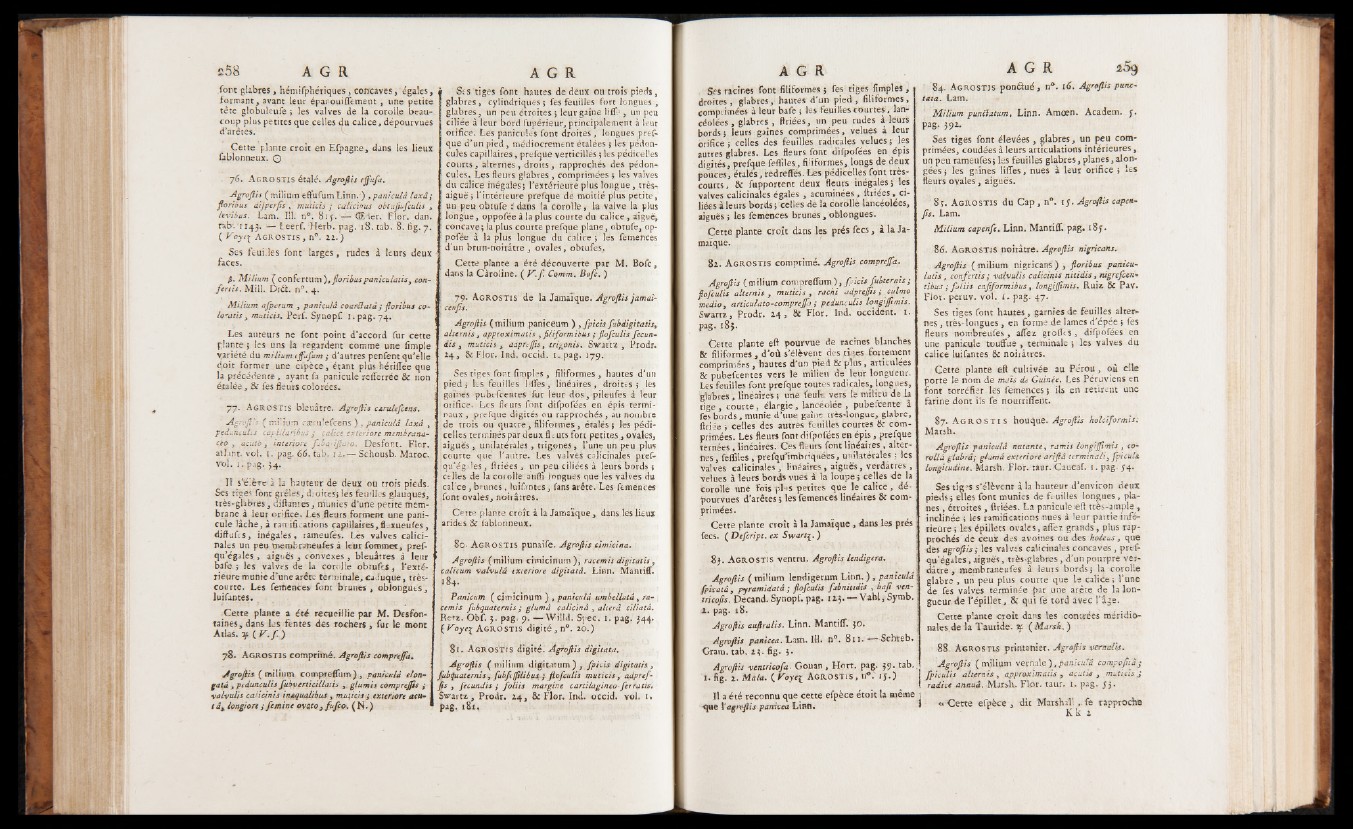 258 A G R
font glabres, hémifphériques, concaves, égales,
formant, avant leur épanouiffement, une petite
tête globuleufe ; les valves de la corolle beau-
coup plus petites que celles du calice, dépourvues
d'arêtes.
Cette plante croît en Efpagne, dans les lieux
fablonneux. ⊙
76. AGROSTIS étalé. Agroftis effufa.
Agroftis (milium effufum Linn.), paniculâ laxâ ;
floribus difperfis, muticis ; calicibus obtufiufculis,
levibus. Lam. Ill. n°. 815. — Œder. Flor. dan.
tab. 1143. — Leerf. Herb. pag. 18. tab. 8. fig. 7.
(Voyez AGROSTIS, n°. 22.)
Ses feuilles font larges, rudes à leurs deux
faces.
β. Milium (confertum), floribus paniculatis, con-
fertis. Mill. Dict. n°. 4.
Milium afperum, paniculâ coarctatâ ; floribus co-
loratis, muticis. Perf. Synopf. 1. pag. 74.
Les auteurs ne font point d'accord fur cette
plante ; les uns la regardent comme une fimple
variété du milium effufum ; d'autres penfent qu'elle
doit former une efpèce, étant plus hériffée que
la précédente, ayant fa panicule refferrée & non
étalée, & fes fleurs colorées.
77. AGROSTIS bleuâtre. Agroftis cærulefcens.
Agroftis (milium cærulefcens), paniculâ laxâ,
pedunculis capillaribus ; calice exteriore membrana-
ceo, acuto, interiore obtufo. Desfont. Flor.
atlant. vol. 1. pag. 66. tab. 12. — Schousb. Maroc.
vol. 1. pag. 34.
Il s'élève à la hauteur de deux ou trois pieds.
Ses tiges font grêles, droites ; les feuilles glauques,
très-glabres, diftantes, munies d'une petite mem-
brane à leur orifice. Les fleurs forment une pani-
cule lâche, à ramifications capillaires, flexueufes,
diffufes, inégales, rameufes. Les valves calici-
nales un peu membraneufes à leur fommet, pref-
qu'égales, aiguës, convexes, bleuâtres à leur
bafe ; les valves de la corolle obtufes, l'exté-
rieure munie d'une arête terminale, caduque, très-
courte. Les femences font brunes, oblongues,
luifantes.
Cette plante a été recueillie par M. Desfon-
taines, dans les fentes des rochers, fur le mont
Atlas. ♃ (V. f.)
78. AGROSTIS comprimé. Agroftis compreffa.
Agroftis (milium compreffum), paniculâ elon-
gatâ, pedunculis fubverticillatis, glumis compreffis ;
valvulis calicinis inæqualibus, muticis ; exteriore acu-
tâ, longiore ; femine ovato, fufco. (N.)
A G R
Ses tiges font hautes de deux ou trois pieds,
glabres, cylindriques ; fes feuilles font longues,
glabres, un peu étroites ; leur gaîne liffe, un peu
ciliée à leur bord fupérieur, principalement à leur
orifice. Les panicules font droites, longues pref-
que d'un pied, médiocrement étalées ; les pédon-
cules capillaires, prefque verticillés ; les pédicelles
courts, alternes, droits, rapprochés des pédon-
cules. Les fleurs glabres, comprimées ; les valves
du calice inégales ; l'extérieure plus longue, très-
aiguë ; l'intérieure prefque de moitié plus petite,
un peu obtufe : dans la corolle, la valve la plus
longue, oppofée à la plus courte du calice, aiguë,
concave ; la plus courte prefque plane, obtufe, op-
pofée à la plus longue du calice ; les femences
d'un brun-noirâtre, ovales, obtufes.
Cette plante a été découverte par M. Bofc,
dans la Caroline. (V. f. Comm. Bofc.)
79. AGROSTIS de la Jamaïque. Agroftis jamai-
cenfis.
Agroftis (milium paniceum), fpicis fubdigitatis,
alternis, approximatis, filiformibus ; flofculis fecun-
dis, muticis, adpreffis, trigonis. Swartz, Prodr.
24, & Flor. Ind. occid. 1. pag. 179.
Ses tiges font fimples, filiformes, hautes d'un
pied ; les feuilles liffes, linéaires, droites ; les
gaînes pubefcentes fur leur dos, pileufes à leur
orifice. Les fleurs font difpofées en épis termi-
naux, prefque digités ou rapprochés, au nombre
de trois ou quatre, filiformes, étalés ; les pédi-
celles terminés par deux fleurs fort petites, ovales,
aiguës, unilatérales, trigones, l'une un peu plus
courte que l'autre. Les valves calicinales pref-
qu'égales, ftriées, un peu ciliées à leurs bords ;
celles de la corolle auffi longues que les valves du
calice, brunes, luifantes, fans arête. Les femences
font ovales, noirâtres.
Cette plante croît à la Jamaïque, dans les lieux
arides & fablonneux.
80. AGROSTIS punaife. Agroftis cimicina.
Agroftis (milium cimicinum), racemis digitatis,
calicum valvulâ exteriore digitatâ. Linn. Mantiff.
184.
Panicum (cimicinum), paniculâ umbellatâ, ra-
cemis fubquaternis ; glumâ calicinâ, alterâ ciliatâ.
Retz. Obf. 3. pag. 9. — Willd. Spec. 1. pag. 344.
(Voyez AGROSTIS digité, n°. 20.)
81. AGROSTIS digité. Agroftis digitata.
Agroftis (milium digitatum), fpicis digitatis,
fubquaternis, fubfeffilibus ; flofculis muticis, adpref-
fis, fecundis ; foliis margine cartilagineo ferratis.
Swartz, Prodr. 24, & Flor. Ind. occid. vol. 1.
pag. 181.
A G R
Ses racines font filiformes ; fes tiges fimples,
droites, glabres, hautes d'un pied, filiformes,
comprimées à leur bafe ; les feuilles courtes, lan-
céolées, glabres, ftriées, un peu rudes à leurs
bords ; leurs gaînes comprimées, velues à leur
orifice ; celles des feuilles radicales velues ; les
autres glabres. Les fleurs font difpofées en épis
digités, prefque feffiles, filiformes, longs de deux
pouces, étalés, redreffés. Les pédicelles font très-
courts, & fupportent deux fleurs inégales ; les
valves calicinales égales, acuminées, ftriées, ci-
liées à leurs bords ; celles de la corolle lancéolées,
aiguës ; les femences brunes, oblongues.
Cette plante croît dans les prés fecs, à la Ja-
maïque.
82. AGROSTIS comprimé. Agroftis compreffa.
Agroftis (milium compreffum), fpicis fubternis ;
flofculis alternis, muticis, rachi adpreffis ; culmo
medio, articulato-compreffo ; pedunculis longiffimis.
Swartz, Prodr. 24, & Flor. Ind. occident. 1.
pag. 183.
Cette plante eft pourvue de racines blanches
& filiformes, d'où s'élèvent des tiges fortement
comprimées, hautes d'un pied & plus, articulées
& pubefcentes vers le milieu de leur longueur.
Les feuilles font prefque toutes radicales, longues,
glabres, linéaires ; une feule vers le milieu de la
tige, courte, élargie, lancéolée, pubefcente à
fes bords, munie d'une gaîne très-longue, glabre,
ftriée ; celles des autres feuilles courtes & com-
primées. Les fleurs font difpofées en épis, prefque
ternées, linéaires. Ces fleurs font linéaires, alter-
nes, feffiles, prefqu'imbriquées, unilatérales : les
valves calicinales, linéaires, aiguës, verdâtres,
velues à leurs bords vues à la loupe ; celles de la
corolle une fois plus petites que le calice, dé-
pourvues d'arêtes ; les femences linéaires & com-
primées.
Cette plante croît à la Jamaïque, dans les prés
fecs. (Defcript. ex Swartz.)
83. AGROSTIS ventru. Agroftis lendigera.
Agroftis (milium lendigerum Linn.), paniculâ
fpicatâ, pyramidatâ ; flofculis fubnitidis, bafi ven-
tricofis. Decand. Synopf. pag. 123. — Vahl, Symb.
2. pag. 18.
Agroftis auftralis. Linn. Mantiff. 30.
Agroftis panicea. Lam. Ill. n°. 811. — Schreb.
Gram. tab. 23. fig. 3.
Agroftis ventricofa. Gouan, Hort. pag. 39. tab.
1. fig. 2. Mala. (Voyez AGROSTIS, n°. 15.)
Il a été reconnu que cette efpèce étoit la même
que l'agroftis panicea Linn.
A G R 259
84. AGROSTIS ponctué, n°. 16. Agroftis punc-
tata. Lam.
Milium punctatum. Linn. Amœn. Academ. 5.
pag. 392.
Ses tiges font élevées, glabres, un peu com-
primées, coudées à leurs articulations inférieures,
un peu rameufes ; les feuilles glabres, planes, alon-
gées ; les gaînes liffes, nues à leur orifice ; les
fleurs ovales, aiguës.
85. AGROSTIS du Cap, n°. 15. Agroftis capen-
fis. Lam.
Milium capenfe. Linn. Mantiff. pag. 185.
86. AGROSTIS noirâtre. Agroftis nigricans.
Agroftis (milium nigricans), floribus panicu-
latis, confertis ; valvulis calicinis nitidis, nigrefcen-
tibus ; foliis enfiformibus, longiffimis. Ruiz & Pav.
Flor. peruv. vol. 1. pag. 47.
Ses tiges font hautes, garnies de feuilles alter-
nes, très-longues, en forme de lames d'épée ; fes
fleurs nombreufes, affez groffes, difpofées en
une panicule touffue, terminale ; les valves du
calice luifantes & noirâtres.
Cette plante eft cultivée au Pérou, où elle
porte le nom de maïs de Guinée. Les Péruviens en
font torréfier les femences ; ils en retirent une
farine dont ils fe nourriffent.
87. AGROSTIS houque. Agroftis holciformis.
Marsh.
Agroftis paniculâ nutante, ramis longiffimis, co-
rollâ glabrâ ; glumâ exteriore ariftâ terminali, fpiculæ
longitudine. Marsh. Flor. taur. Caucaf. 1. pag. 54.
Ses tiges s'élèvent à la hauteur d'environ deux
pieds ; elles font munies de feuilles longues, pla-
nes, étroites, ftriées. La panicule eft très-ample,
inclinée ; les ramifications nues à leur partie infé-
rieure ; les épillets ovales, affez grands, plus rap-
prochés de ceux des avoines ou des holcus, que
des agroftis ; les valves calicinales concaves, pref-
qu'égales, aiguës, très-glabres, d'un pourpre ver-
dâtre, membraneufes à leurs bords ; la corolle
glabre, un peu plus courte que le calice ; l'une
de fes valves terminée par une arête de la lon-
gueur de l'épillet, & qui fe tord avec l'âge.
Cette plante croît dans les contrées méridio-
nales de la Tauride. ♃ (Marsh.)
88. AGROSTIS printanier. Agroftis vernalis.
Agroftis (milium vernale), paniculâ compofitâ ;
fpiculis alternis, approximatis, acutis, muticis ;
radice annuâ. Marsh. Flor. taur. 1. pag. 53.
« Cette efpèce, dit Marshall, fe rapproche
K k 2